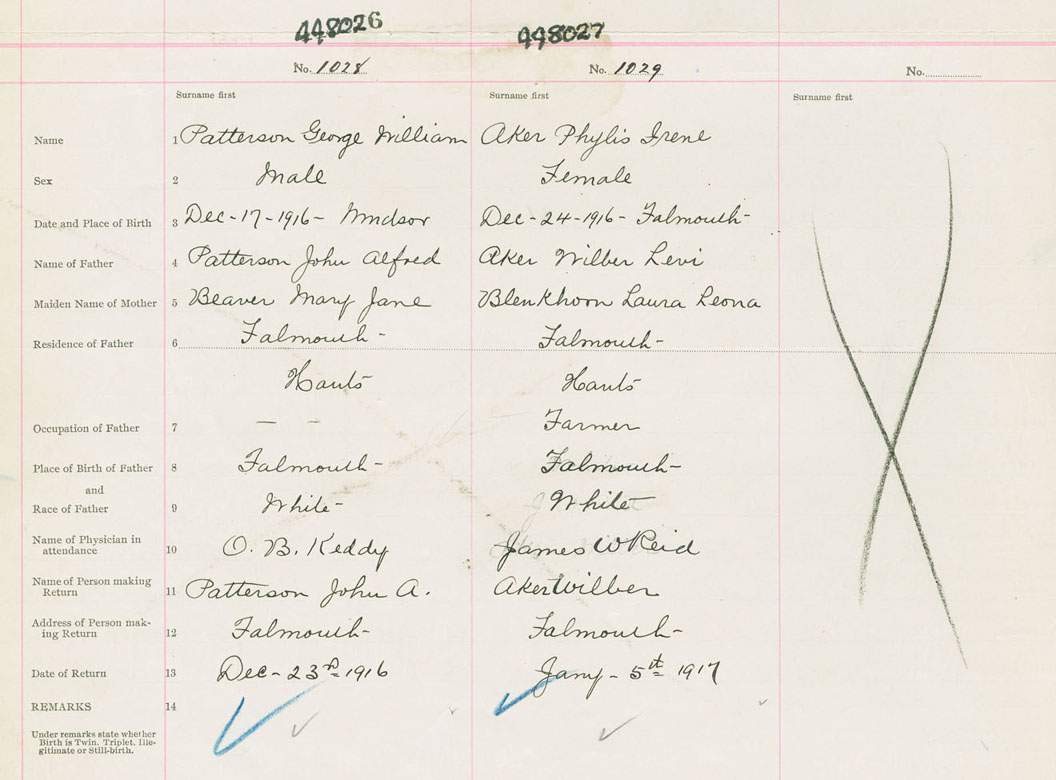 448026 448027
No. 1028 No. 1029 No.
Surname first Surname first Surname first
Name 1 Patterson George William Aker Phylis Irene
Sex 2 Male Female
Date and Place of Birth 3 Dec-17-1916- Windsor Dec-24-1916- Falmouth-
Name of Father 4 Patterson John Alfred Aker Wilber Levi
Maiden Name of Mother 5 Beaver Mary Jane Blenkhorn Laura Leona
Residence of Father 6 Falmouth- Falmouth-
Hants Hants
Occupation of Father 7 — — Farmer
Place of Birth of Father 8 Falmouth- Falmouth-
and
Race of Father 9 White- White
Name of Physician in
attendance 10 O. B. Keddy James W Reid
Name of Person making
Return 11 Patterson John A. Aker Wilber
Address of Person mak-
ing Return 12 Falmouth- Falmouth-
Date of Return 13 Dec-23rd 1916 Jany-5th 1917
REMARKS 14
Under remarks state whether
Birth is Twin, Triplet, Ille-
gitimate or Still-birth.